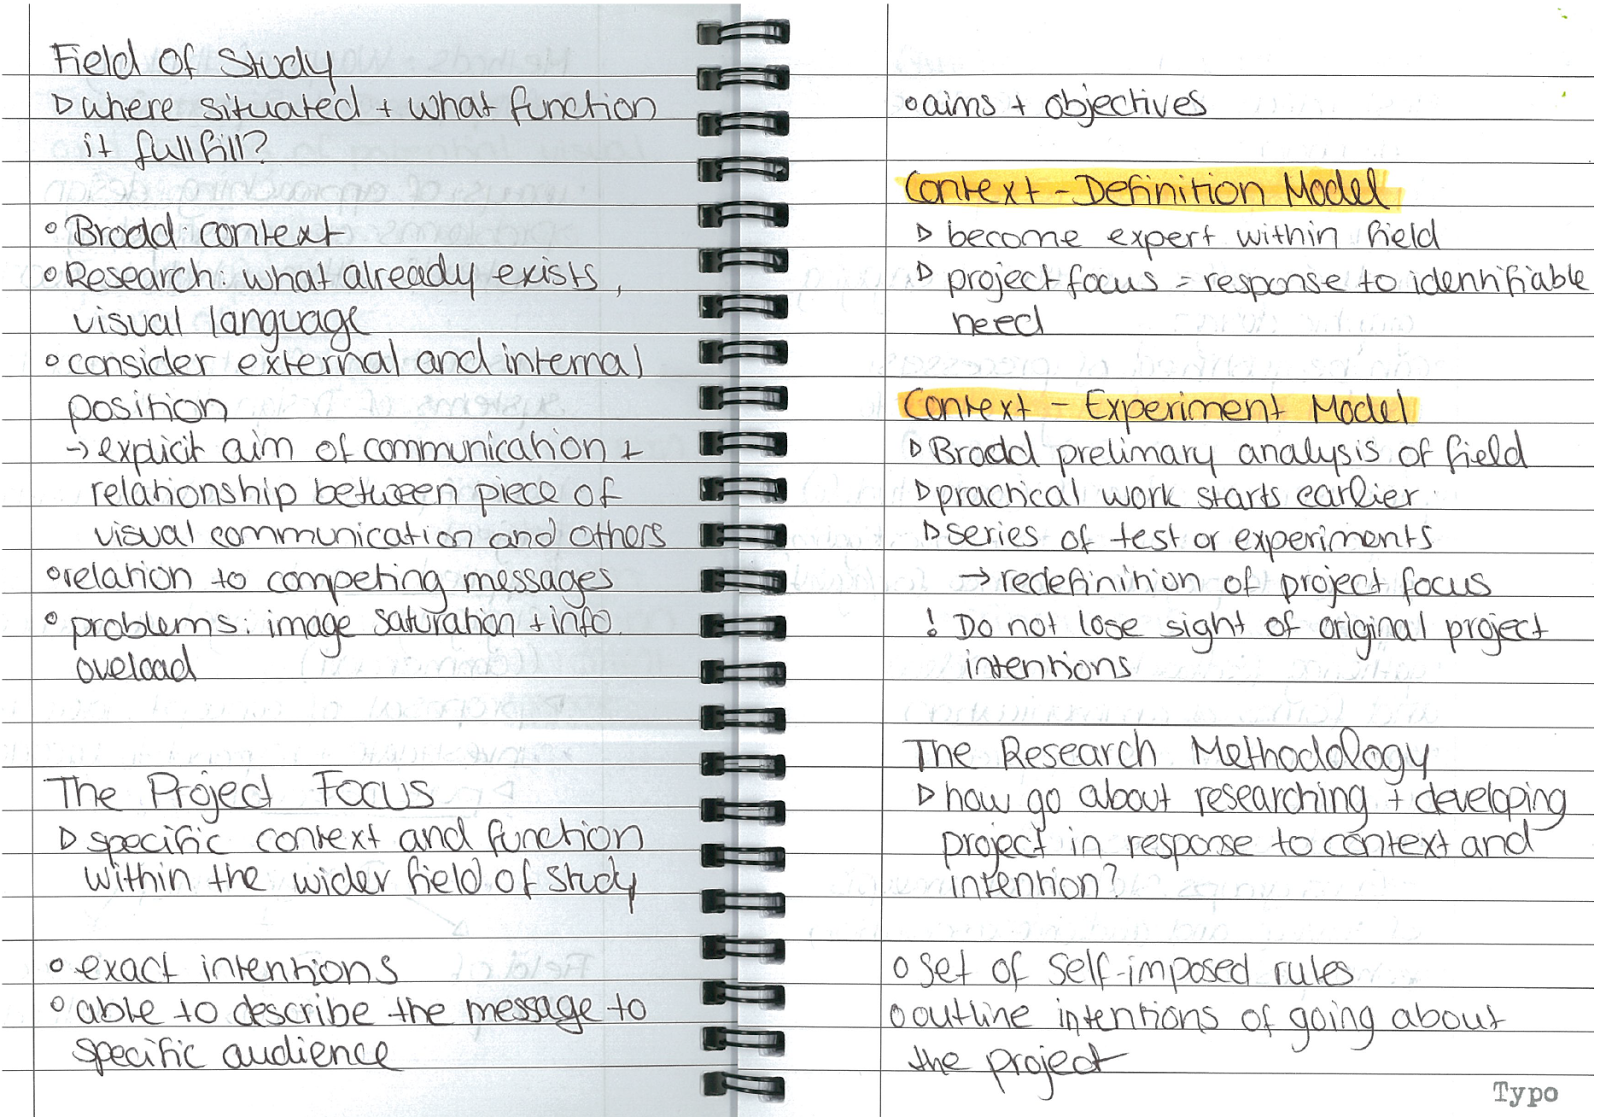 Field of Study
▷ where situated + what function
it fullfill?
o Broad context
o Research: what already exists,
visual language
o consider external and internal
position
→ explicit aim of communication +
relationship between piece of
visual communication and others
o relation to competing messages
o problems: image saturation + info
oveload
The Project Focus
▷ specific context and function
within the wider field of study
o exact intentions
o able to describe the message to
specific audience
o aims + objectives
Context - Definition Model
▷ become expert within field
▷ project focus = response to identifiable
need
Context - Experiment Model
▷ Broad prelimary analysis of field
▷ practical work starts earlier
▷ series of test or experiments
→ redefinition of project focus
! Do not lose sight of original project
intentions
The Research Methodology
▷ how go about researching + developing
project in response to context and
intention?
o set of self-imposed rules
o outline intentions of going about
the project
Typo